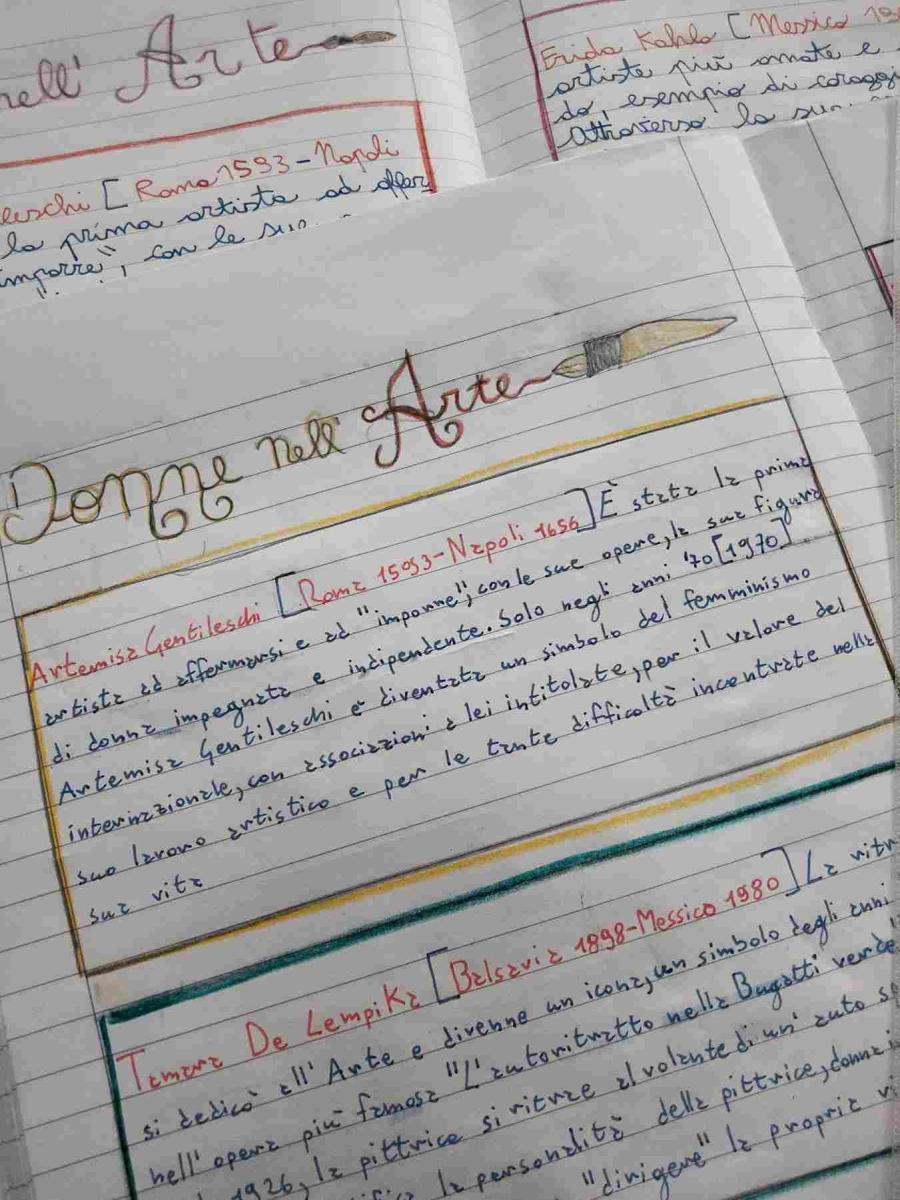 nell' Arte
leschi [Roma 1593-Napoli
la prima artista ad affer
imporre", con le sue
Erida Kahlo [Messico 19
artiste più amate e
do, esempio di coraggi
attraverso la sua
Donne nell' Arte
Artemisa Gentileschi [Roma 1593-Napoli 1656] È stata la prima
artista ad affermarsi e ad "imporre", con le sue opere, la sua figura
di donna impegnata e indipendente. Solo negli anni '70 [1970]
Artemisa Gentileschi è diventata un simbolo del femminismo
internazionale, con associazioni a lei intitolate, per il valore del
suo lavoro artistico e per le tante difficoltà incontrate nella
sua vita
Tamara De Lempika [Balsavia 1898-Messico 1980] La vita
si dedicò all'Arte e divenne un icona, un simbolo degli anni
nell'opera più famosa "L'autoritratto nella Bugatti verde"
1926, la pittrice si ritrae al volante di un' auto s
la personalità della pittrice, donna i
"dirigere" la propria vi